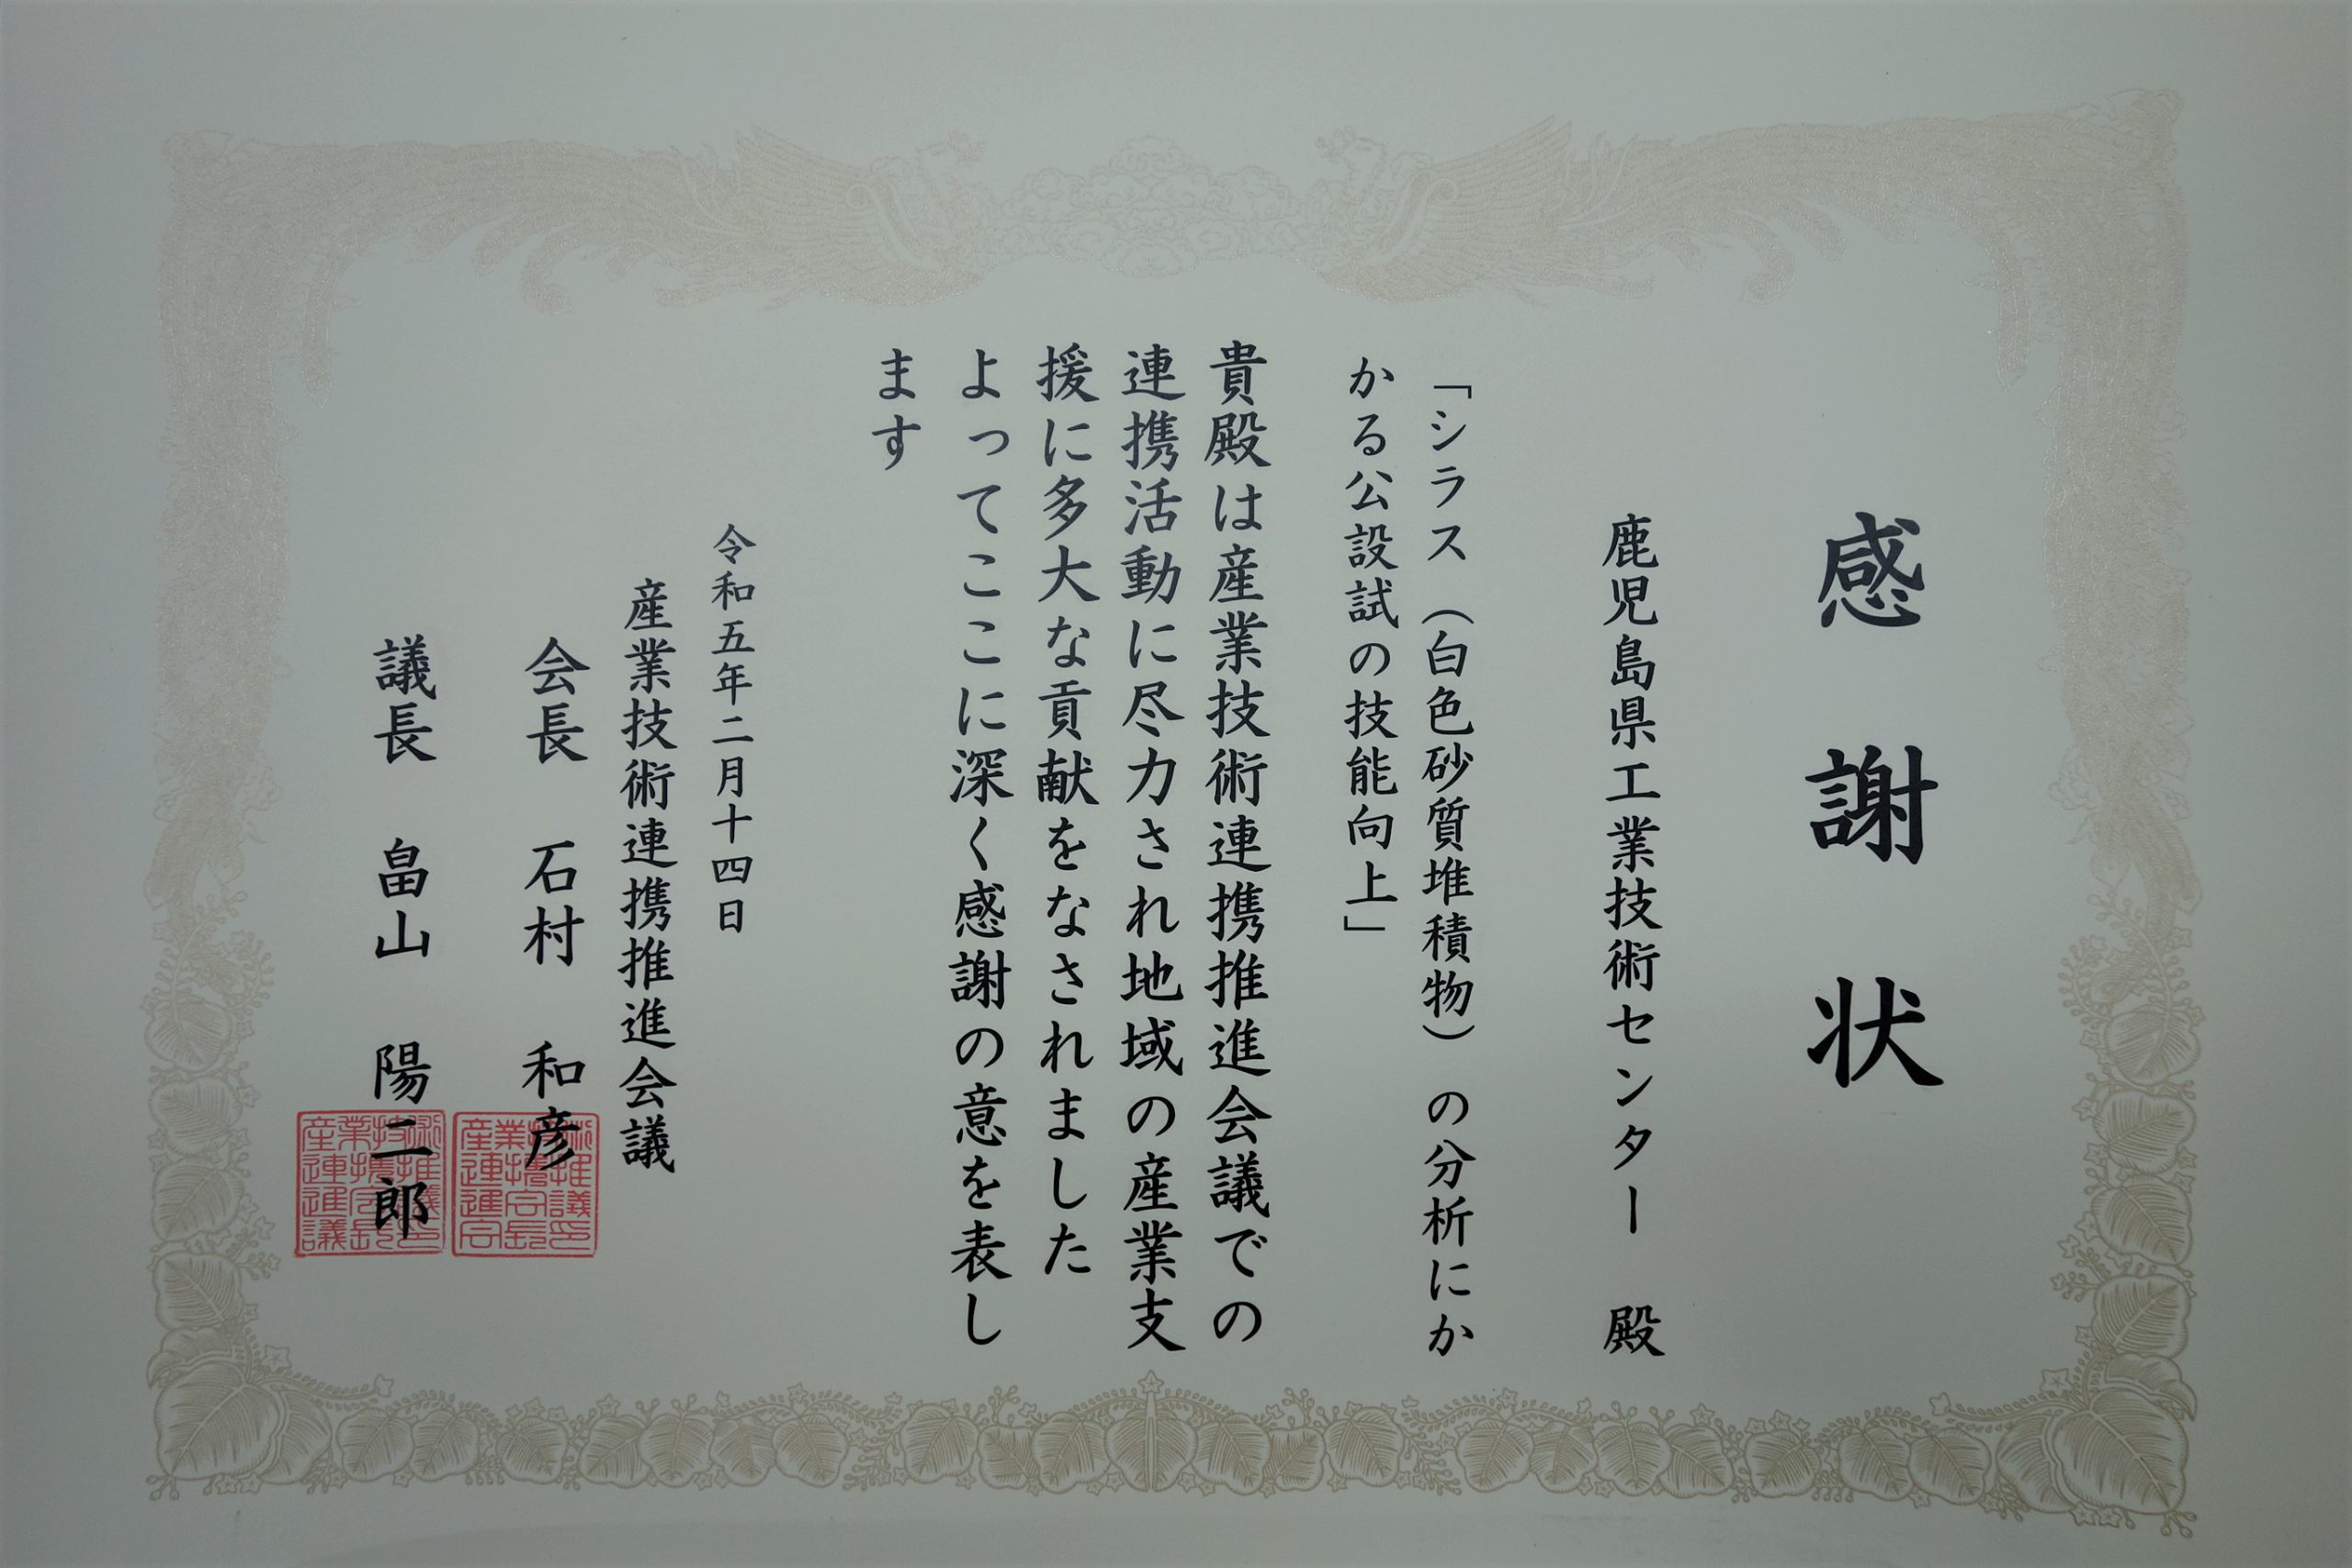 感謝状
鹿児島県工業技術センター 殿
「シラス（白色砂質堆積物）の分析にか
かる公設試の技能向上」
貴殿は産業技術連携推進会議での
連携活動に尽力され地域の産業支
援に多大な貢献をなされました
よってここに深く感謝の意を表し
ます
令和五年二月十四日
産業技術連携推進会議
会長 石村 和彦
議長 畠山 陽二郎